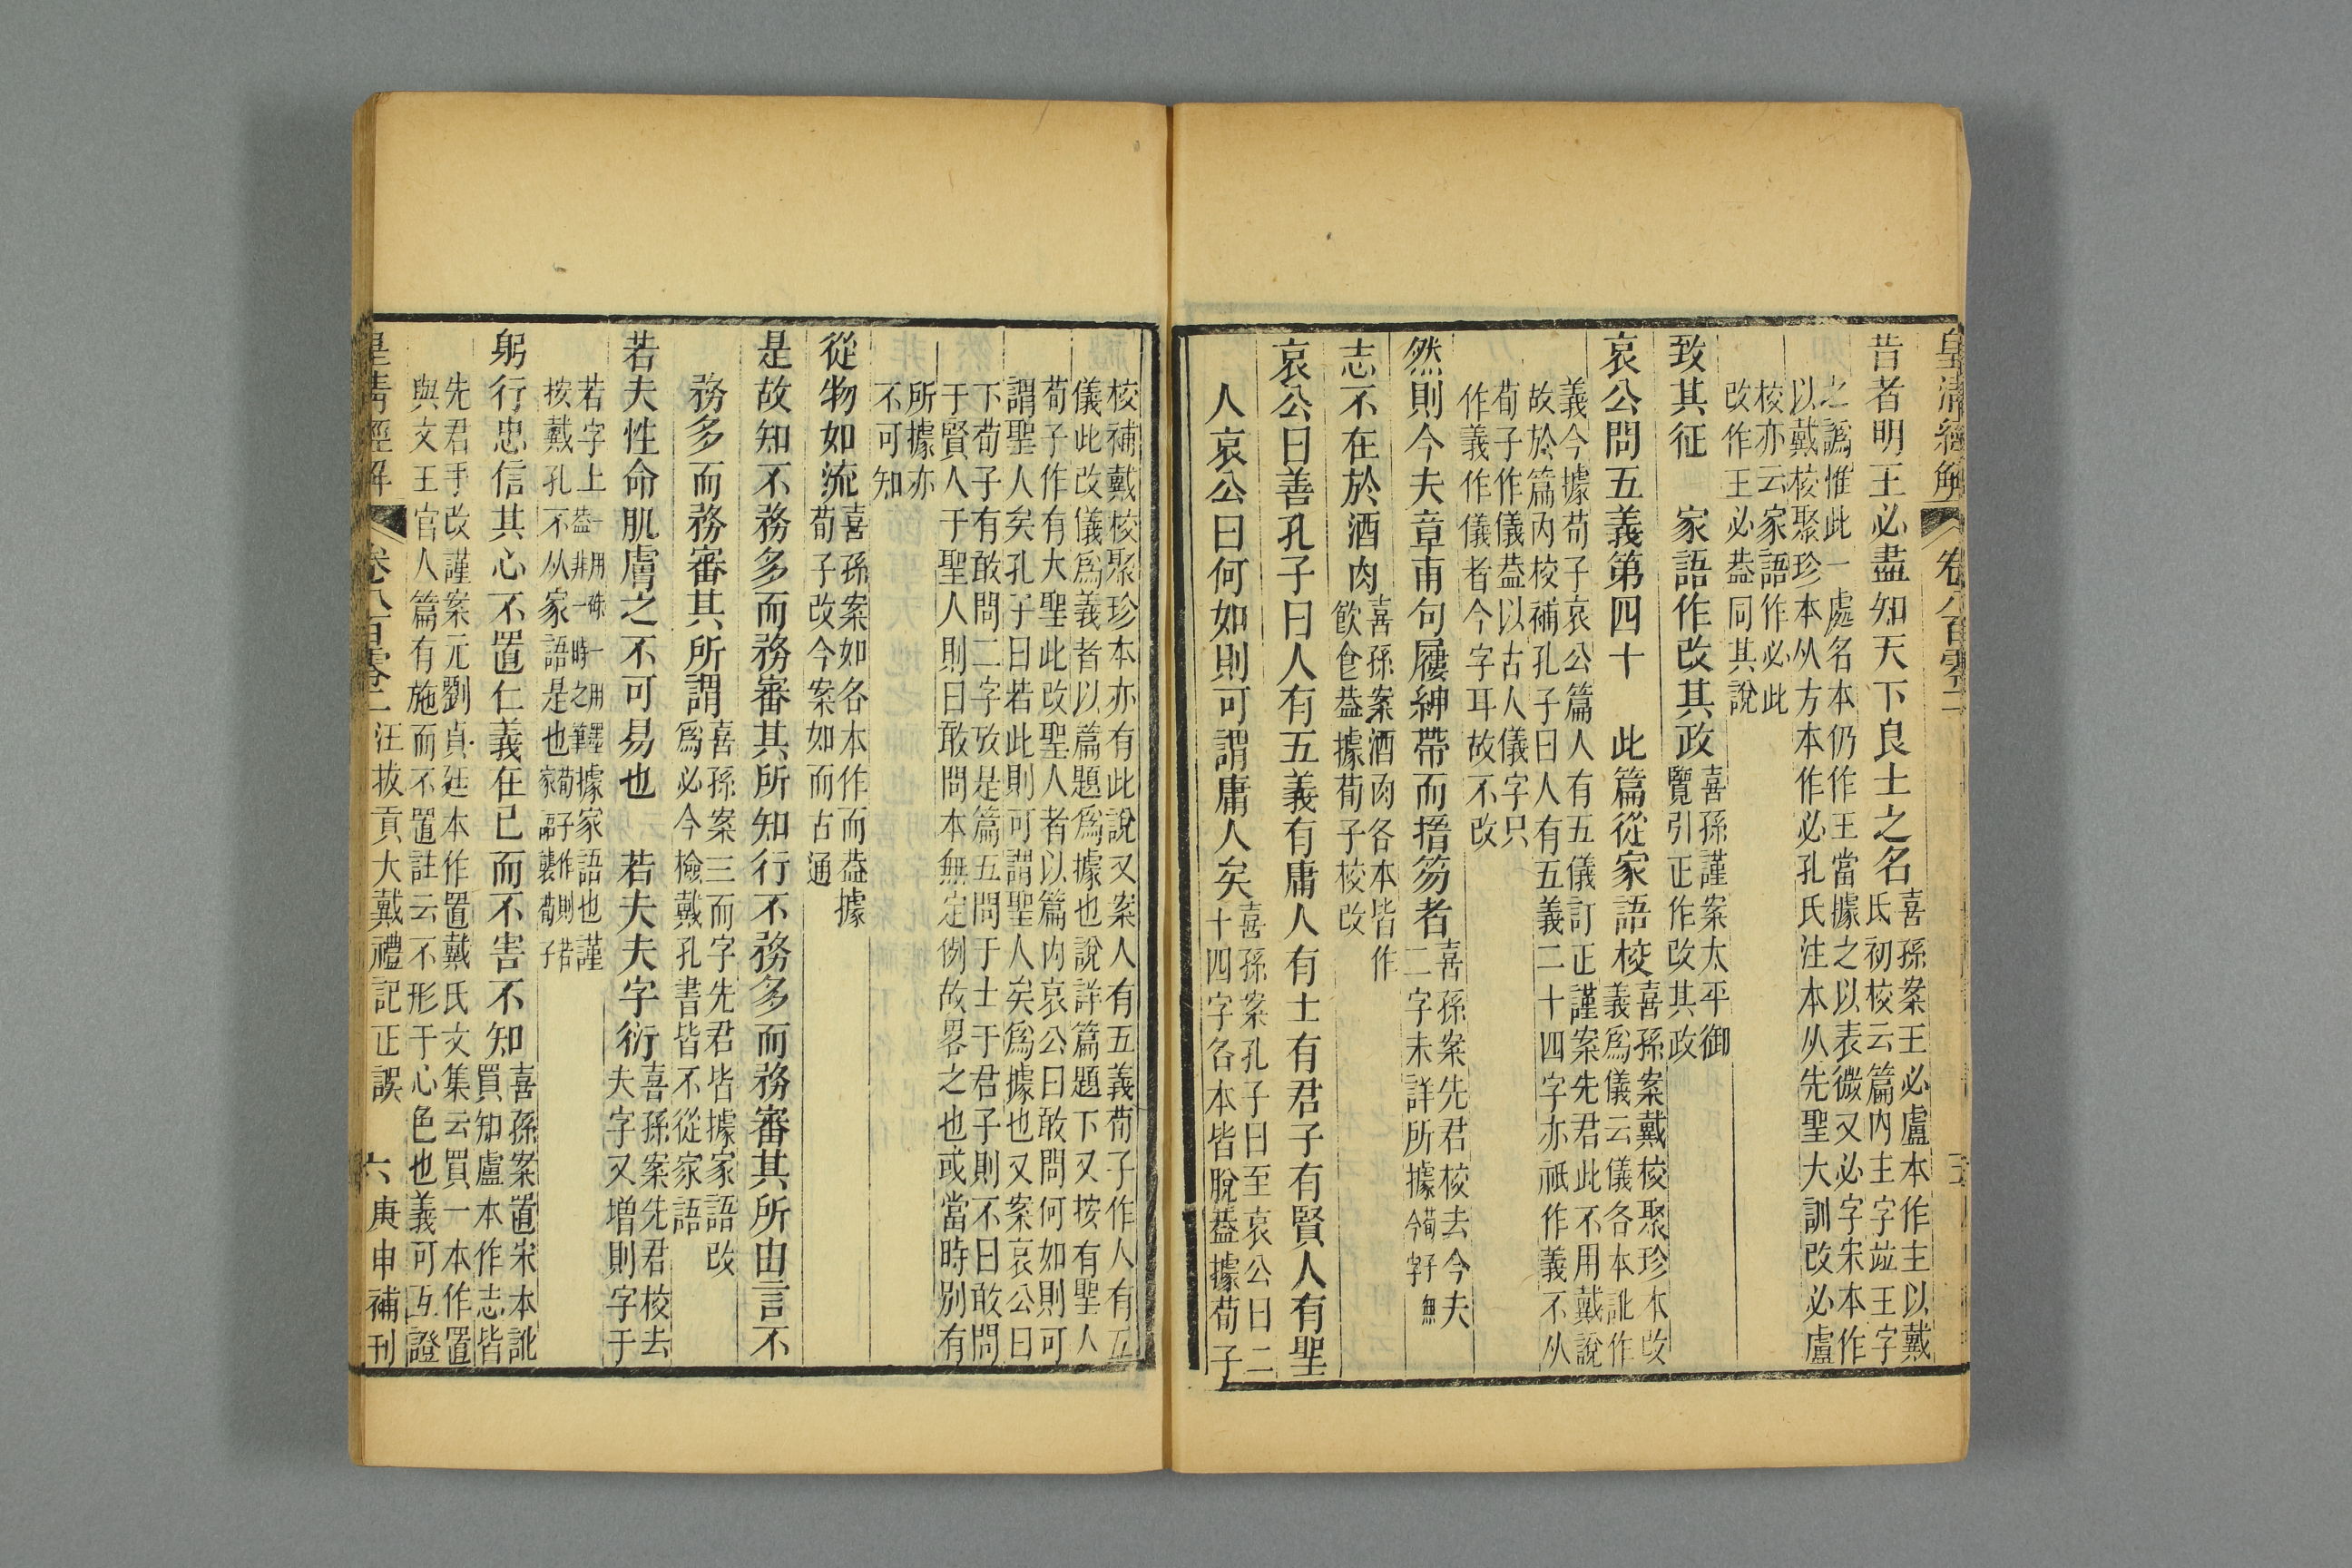 皇清經解 卷八百零二
昔者明王必盡知天下良士之名
喜孫案王必盧本作主以戴
氏初校云篇内主字竝王字
之譌惟此一處名本仍作王當據之以表微又必字宋本作
以戴校聚珍本从方本作必孔氏注本从先聖大訓改必盧
校亦云家語作必此
改作王必葢同其說
致其征 家語作改其政
喜孫謹案太平御
覽引正作改其政
哀公問五義第四十 此篇從家語校
喜孫案戴校聚珍本改
義爲儀云儀各本訛作
義今據荀子哀公篇人有五儀訂正謹案先君此不用戴說
故於篇内校補孔子曰人有五義二十四字亦祇作義不从
荀子作儀葢以古人儀字只
作義作儀者今字耳故不改
然則今夫章甫句屨紳帶而搢笏者
喜孫案先君校去今夫
二字未詳所據
荀子無
今字
志不在於酒肉
喜孫案酒肉各本皆作
飲食葢據荀子校改
哀公曰善孔子曰人有五義有庸人有士有君子有賢人有聖
人哀公曰何如則可謂庸人矣
喜孫案孔子曰至哀公曰二
十四字各本皆脫葢據荀子
校補戴校聚珍本亦有此說又案人有五義荀子作人有五
儀此改儀爲義者以篇題爲據也說詳篇題下又按有聖人
荀子作有大聖此改聖人者以篇内哀公曰敢問何如則可
謂聖人矣孔子曰若此則可謂聖人矣爲據也又案哀公曰
下荀子有敢問二字攷是篇五問于士于君子則不曰敢問
于賢人于聖人則曰敢問本無定例故畧之也或當時别有
所據亦
不可知
從物如流
喜孫案如各本作而葢據
荀子改今案如而古通
是故知不務多而務審其所知行不務多而務審其所由言不
務多而務審其所謂
喜孫案三而字先君皆據家語改
爲必今檢戴孔書皆不從家語
若夫性命肌膚之不可易也 若夫夫字衍
喜孫案先君校去
夫字又增則字于
若字上
一用硃一用墨
葢非一時之筆
據家語也謹
按戴孔不从家語是也
荀子作則若
家語襲荀子
躬行忠信其心不置仁義在已而不害不知
喜孫案置宋本訛
買知盧本作志皆
先君手改謹案元劉貞廷本作置戴氏文集云買一本作置
與文王官人篇有施而不置註云不形于心色也義可互證
皇清經解 卷八百零二 汪拔貢大戴禮記正誤 六 庚申補刊